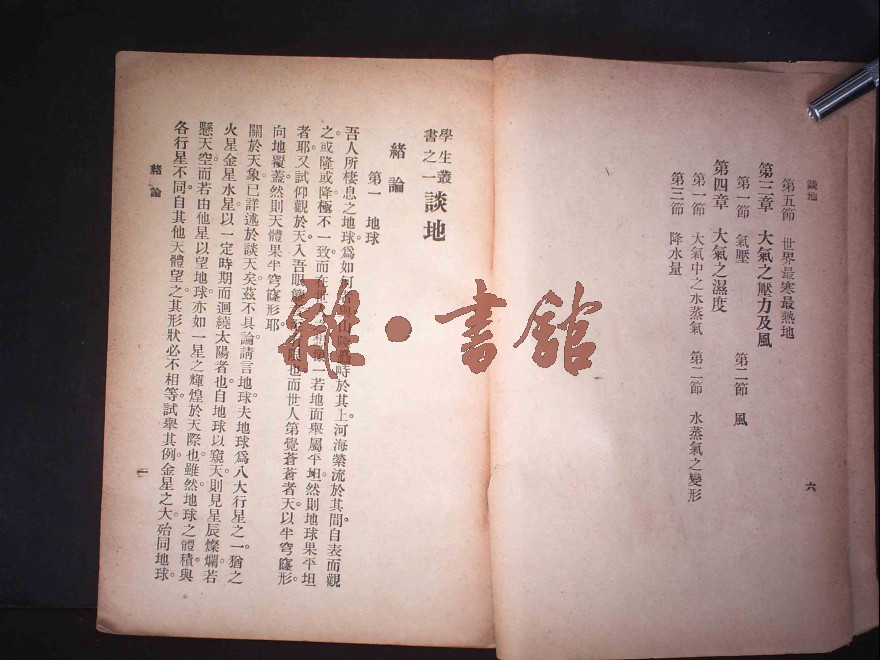 談地
第五節 世界最寒最熱地
第三章 大氣之壓力及風
第一節 氣壓 第二節 風
第四章 大氣之濕度
第一節 大氣中之水蒸氣 第二節 水蒸氣之變形
第三節 降水量
六
學生叢書之一 談地
緒論
第一 地球
吾人所棲息之地球。爲如何 山陵 峙於其上。河海縈流於其間。自表而觀
之。或隆或降。極不一致。而在世 一若地面舉屬平坦。然則地球果平坦
者耶。又試仰觀於天。入吾眼 也。而世人第覺蒼蒼者天。以半穹窿形
向地覆蓋。然則天體果半穹窿形耶。
關於天象。已詳述於談天矣。茲不具論。請言地球。夫地球爲八大行星之一。猶之
火星金星水星。以一定時期而迴繞太陽者也。自地球以窺天。則見星辰燦爛。若
懸天空。而若由他星以望地球。亦如一星之輝煌於天際也。雖然。地球之體積。與
各行星不同。自其他天體望之。其形狀必不相等。試舉其例。金星之大。殆同地球。
緒論
一
雜·書館